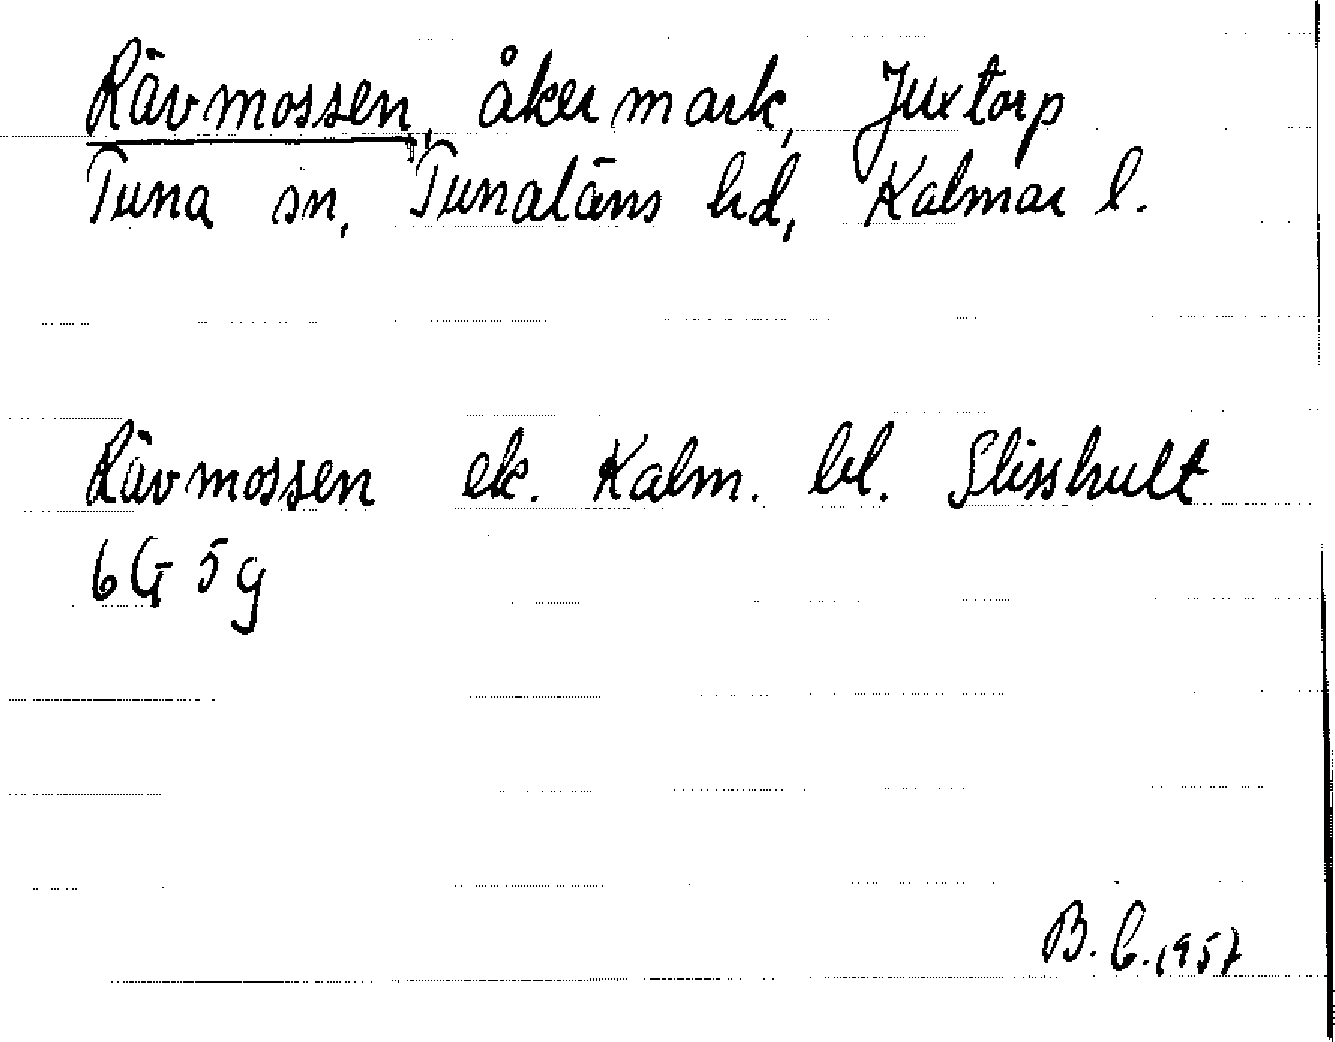 Rävmossen, åkermark, Juxtorp
Tuna sn, Tunaläns hd, Kalmar l.
Rävmossen ek. Kalm. bl. Slisshult
6G 5g
B. C. 1957